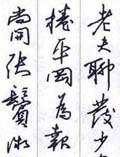 老夫聊發少
捲平岡為報
尚開張鬢微